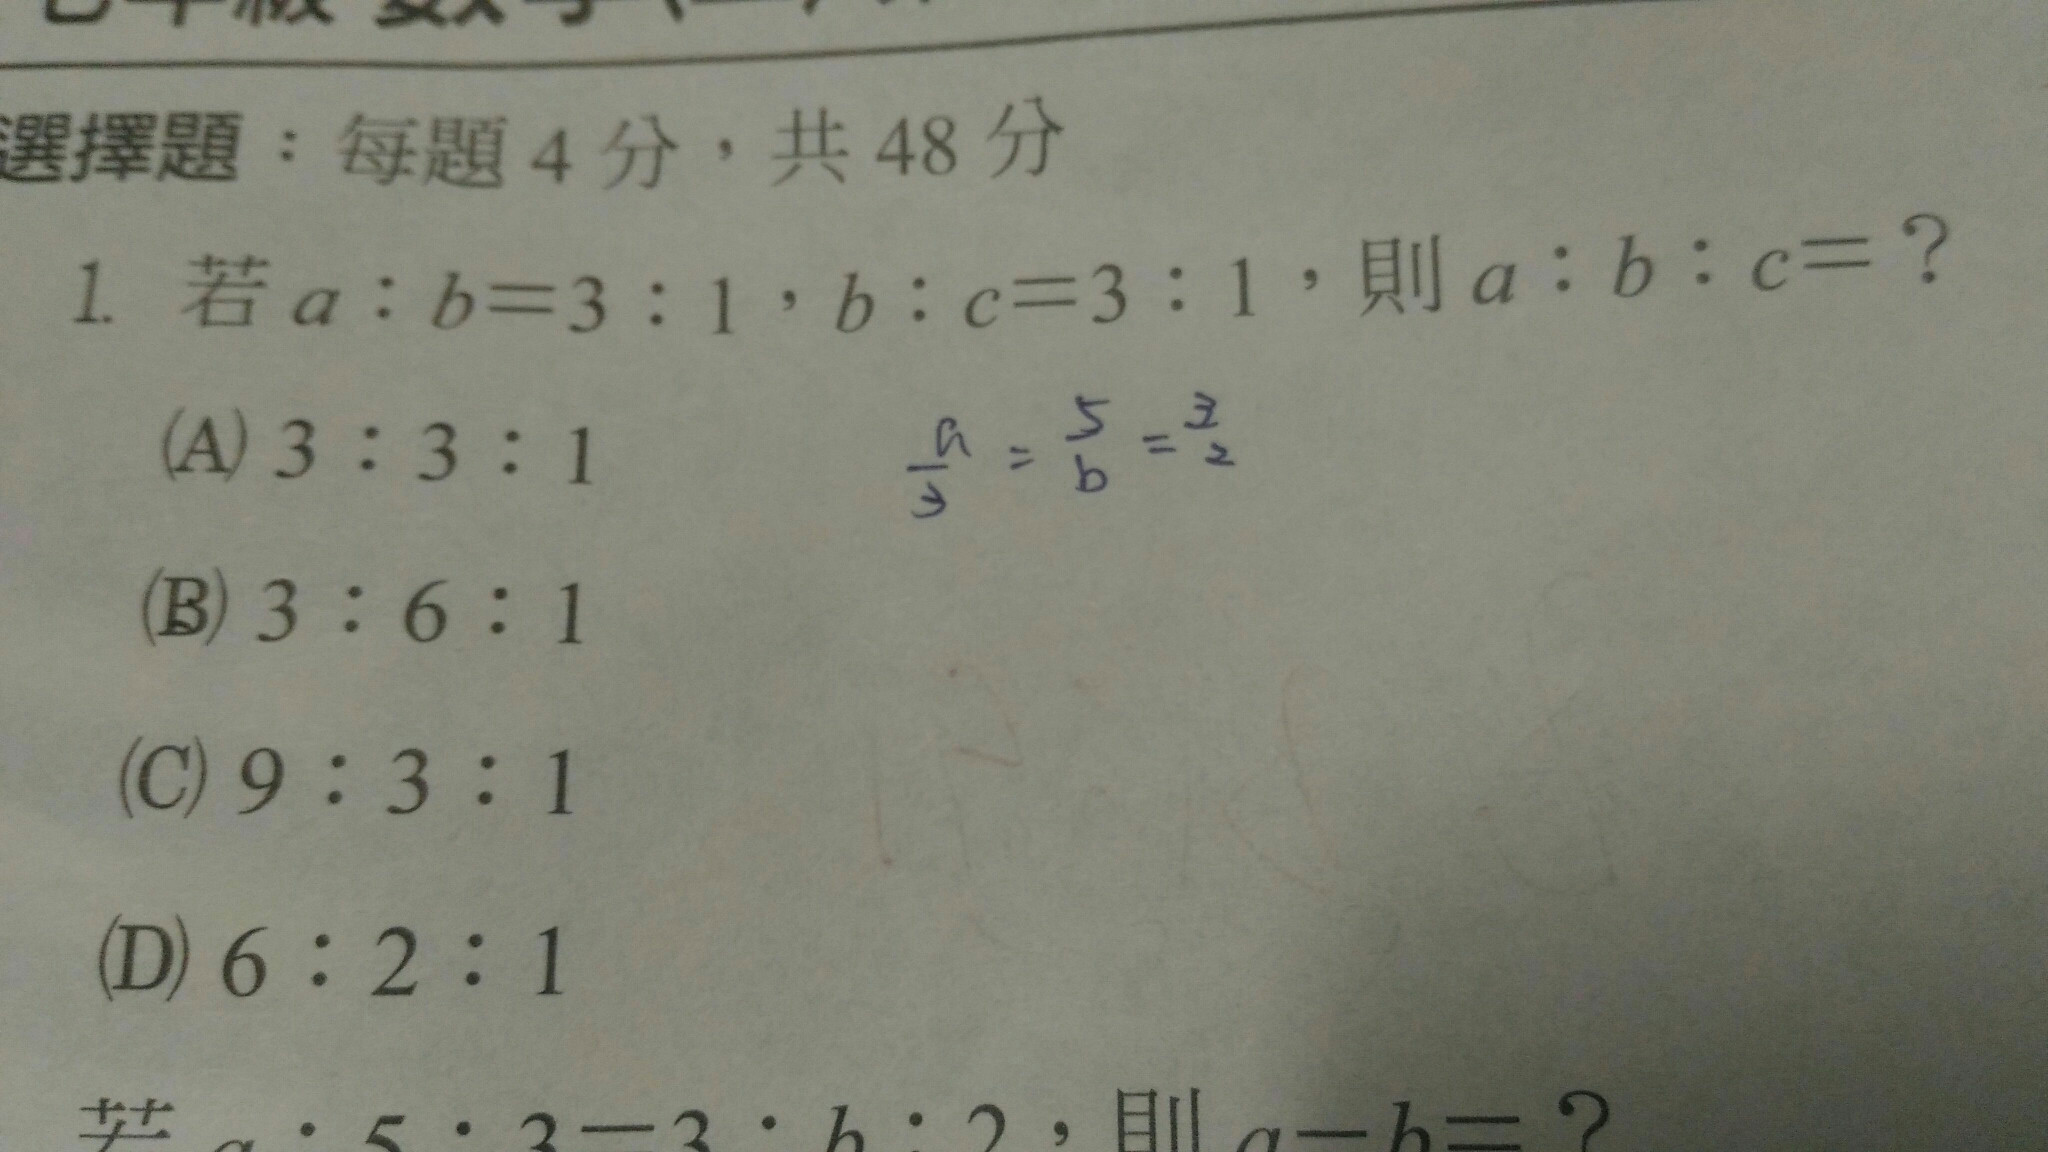 七年級 數學
選擇題：每題 4 分，共 48 分
1. 若 a：b＝3：1，b：c＝3：1，則 a：b：c＝？
(A) 3：3：1
a/3 = 5/b = 3/2
(B) 3：6：1
(C) 9：3：1
(D) 6：2：1
若 a：5：3＝3：b：2，則 a－b＝？